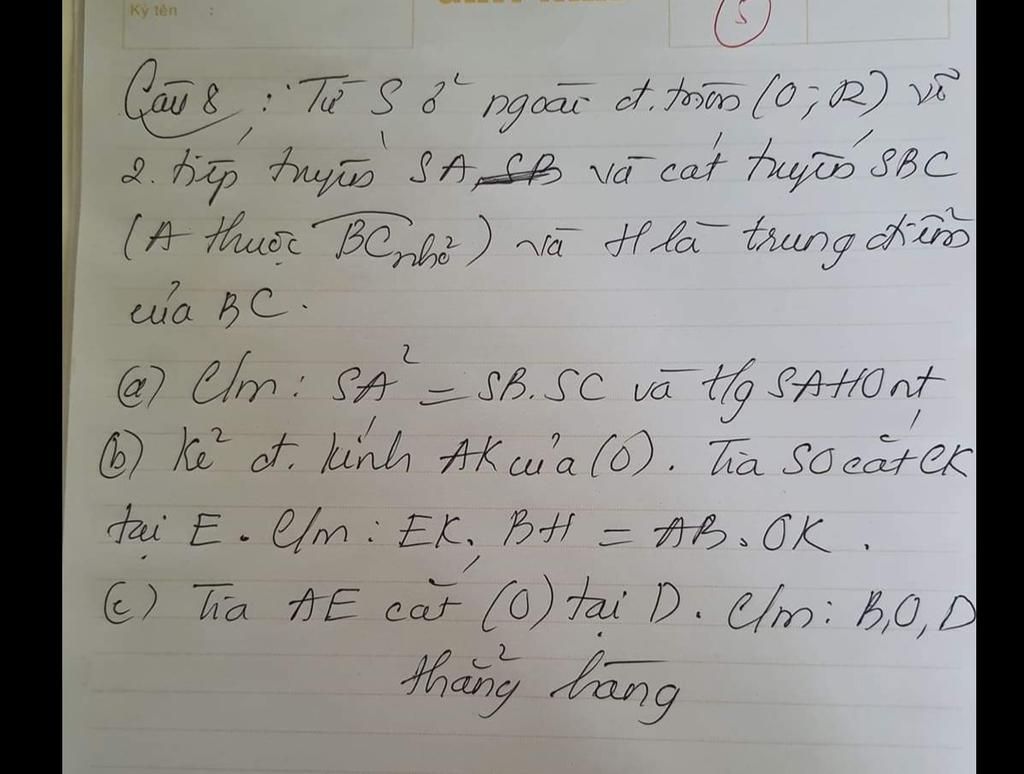 Ký tên :
5
Câu 8 : Từ S ở ngoài đ.tròn (O; R) vẽ
2. tiếp tuyến SA, SB và cát tuyến SBC
(A thuộc BC nhỏ) và H là trung điểm
của BC.
(a) C/m : SA² = SB.SC và t/g SAHO nt
(b) Kẻ đ. kính AK của (O). Tia SO cắt CK
tại E. C/m : EK. BH = AB. OK.
(c) Tia AE cắt (O) tại D. C/m : B,O,D
thẳng hàng